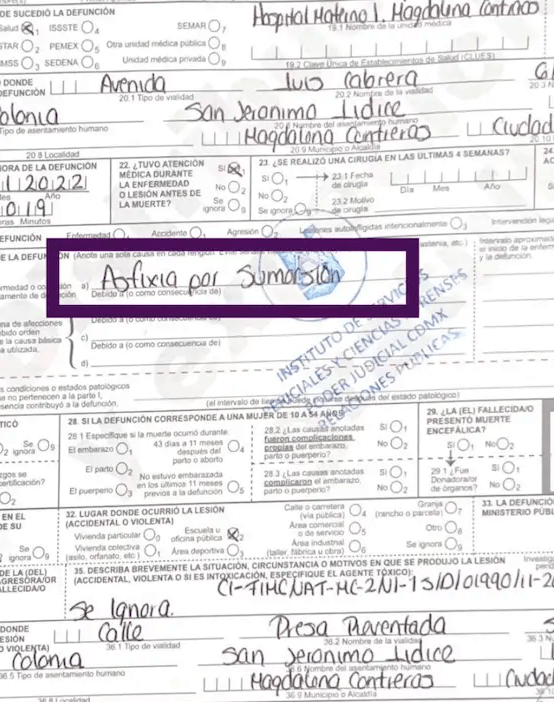 DE SUCEDIÓ LA DEFUNCIÓN
Salud 1 ISSSTE 4 SEMAR 7
STAR 2 PEMEX 5 Otra unidad médica pública 8
IMSS 3 SEDENA 6 Unidad médica privada 9
Hospital Materno I. Magdalena Contreras
19.1 Nombre de la unidad médica
19.2 Clave Única de Establecimientos de Salud (CLUES)
DONDE
DEFUNCIÓN
Avenida
20.1 Tipo de vialidad
Luis Cabrera
20.2 Nombre de la vialidad
Colonia
Tipo de asentamiento humano
San Jeronimo Lidice
20.6 Nombre del asentamiento humano
20.8 Localidad
Magdalena Contreras
20.9 Municipio o Alcaldía
Ciudad
HORA DE LA DEFUNCIÓN
2022
Año
019
Horas Minutos
22. ¿TUVO ATENCIÓN
MÉDICA DURANTE
LA ENFERMEDAD
O LESIÓN ANTES DE
LA MUERTE?
Sí 1
No 2
Se ignora 9
23. ¿SE REALIZÓ UNA CIRUGÍA EN LAS ÚLTIMAS 4 SEMANAS?
Sí 1 23.1 Fecha
de cirugía
Día Mes Año
No 2
Se ignora 9
23.2 Motivo
de cirugía
24.
DEFUNCIÓN
Enfermedad 1 Accidente 1 Agresión 2 Lesiones autoinfligidas intencionalmente 3 Intervención legal
DE LA DEFUNCIÓN (Anote una sola causa en cada renglón.
astenia, etc.)
Intervalo aproximado
el inicio de la enfermedad
y la defunción.
enfermedad o condición
tamente de defunción
a) Asfixia por Sumersión
Debido a (o como consecuencia de)
Debido a (o como consecuencia de)
c)
Debido a (o como consecuencia de)
d)
na de afecciones
debido orden
e la causa básica
utilizada.
INSTITUTO DE SERVICIOS
PERICIALES Y CIENCIAS FORENSES
PODER JUDICIAL CDMX
RELACIONES PÚBLICAS
s condiciones o estados patológicos
ue no pertenecen a la parte I,
esencia contribuyó a la defunción.
28. SI LA DEFUNCIÓN CORRESPONDE A UNA MUJER DE 10 A 54 AÑOS
28.1 Especifique si la muerte ocurrió durante
El embarazo 1
43 días a 11 meses
después del
parto o aborto 4
El parto 2
El puerperio 3
No estuvo embarazada
en los últimos 11 meses
previos a la defunción 5
28.2 ¿Las causas anotadas
fueron complicaciones
propias del embarazo,
parto o puerperio?
Sí 1
No 2
28.3 ¿Las causas anotadas
complicaron el embarazo,
parto o puerperio?
Sí 1
No 2
29. ¿LA (EL) FALLECIDA/O
PRESENTÓ MUERTE
ENCEFÁLICA?
Sí 1 No 2
29.1 ¿Fue
Donadora/or
de órganos?
Sí 1
No 2
32. LUGAR DONDE OCURRIÓ LA LESIÓN
(ACCIDENTAL O VIOLENTA)
Vivienda particular 0
Vivienda colectiva 1
(asilo, orfanato, etc.)
Escuela u
oficina pública 2
Área deportiva 3
Calle o carretera
(vía pública) 4
Área comercial
o de servicio 5
Área industrial
(taller, fábrica u obra) 6
Granja
(rancho o parcela) 7
Otro 8
Se ignora 9
33. LA DEFUNCIÓN
MINISTERIO PÚBLICO
DE LA (DEL)
AGRESORA/OR
FALLECIDA/O
35. DESCRIBA BREVEMENTE LA SITUACIÓN, CIRCUNSTANCIA O MOTIVOS EN QUE SE PRODUJO LA LESIÓN
(ACCIDENTAL, VIOLENTA O SI ES INTOXICACIÓN, ESPECIFIQUE EL AGENTE TÓXICO):
Se ignora.
DONDE
LESIÓN
O VIOLENTA)
Calle
36.1 Tipo de vialidad
Presa Reventada
36.2 Nombre de la vialidad
Colonia
36.5 Tipo de asentamiento humano
San Jeronimo Lidice
36.6 Nombre del asentamiento humano
36.8 Localidad
Magdalena Contreras
36.9 Municipio o Alcaldía
Ciudad